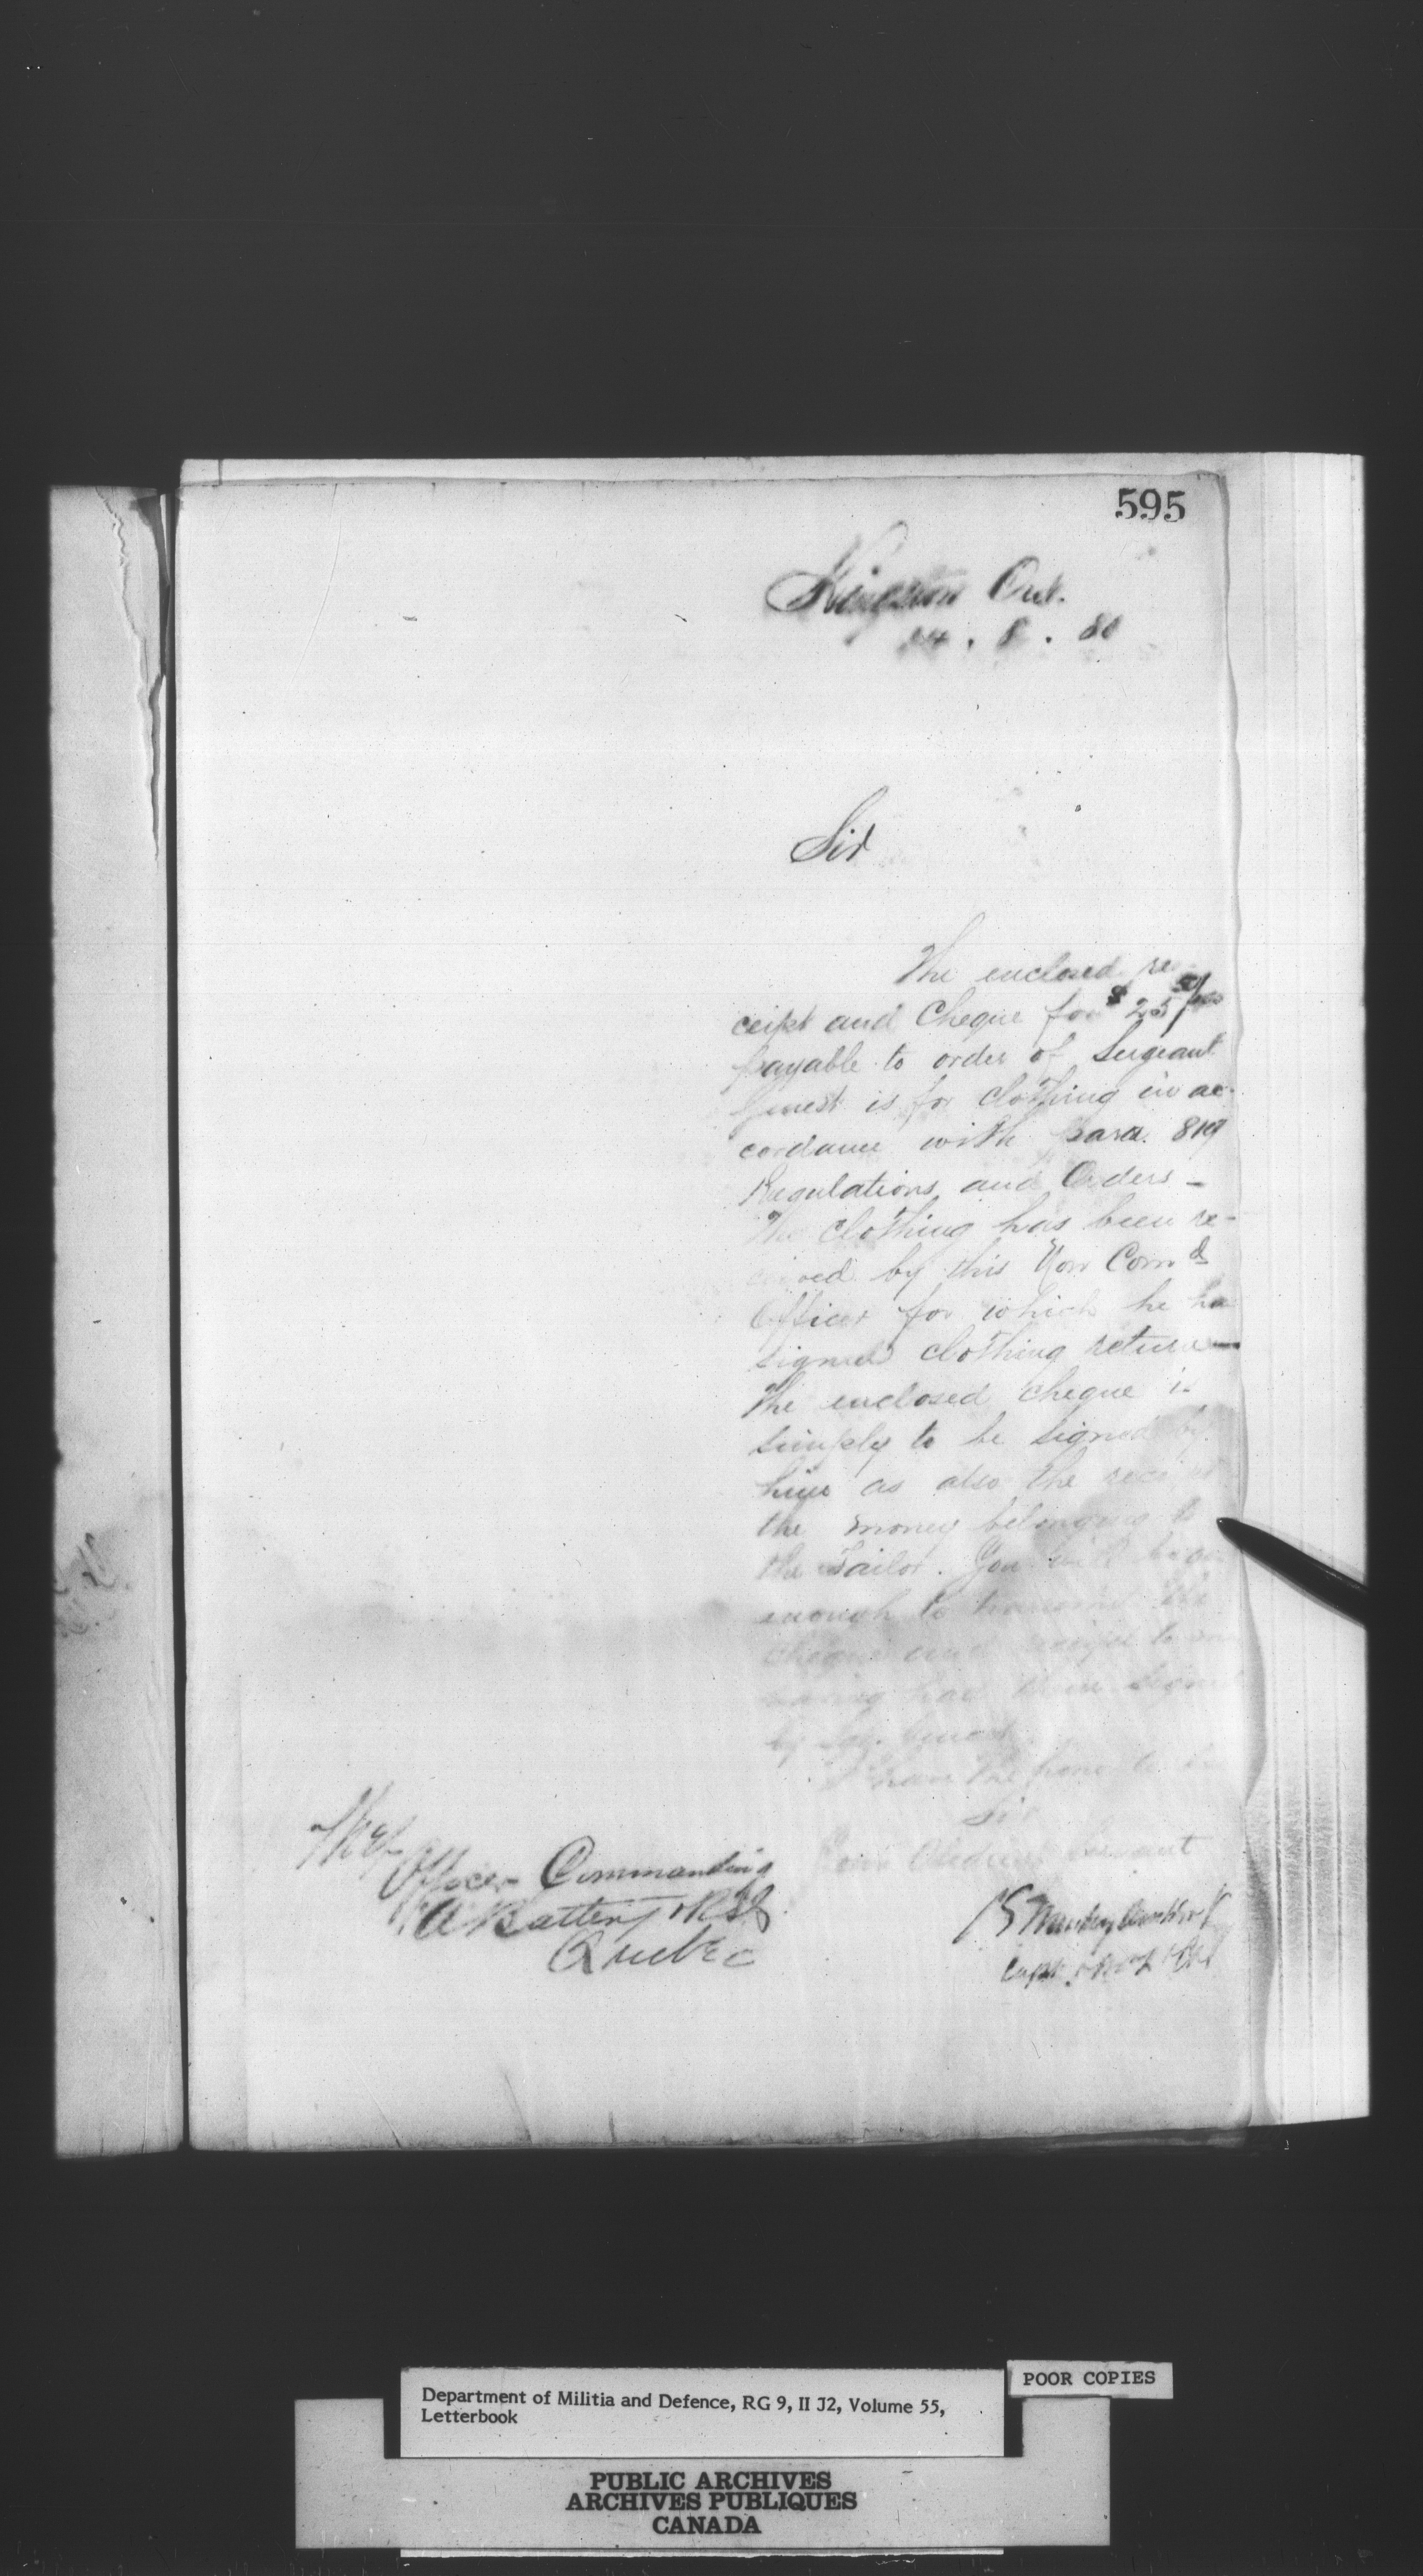 595
Kingston Ont.
14 . 8 . 80
Sir
The enclosed re-
ceipt and Cheque for $25
payable to order of Sergeant
is for clothing in ac-
cordance with para. 819
Regulations and Orders —
The clothing has been re-
ceived by this Non Comd
Officer for which he has
signed clothing return —
The enclosed cheque is
simply to be signed by
him as also the receipt
the money belonging to
the Tailor. You will be good
enough to transmit the
cheque and receipt to me
having had them signed
by
I have the honor to be
Sir
Your Obedient Servant
The Officer Commanding
A Battery
Quebec
Capt.
Department of Militia and Defence, RG 9, II J2, Volume 55,
Letterbook
POOR COPIES
PUBLIC ARCHIVES
ARCHIVES PUBLIQUES
CANADA